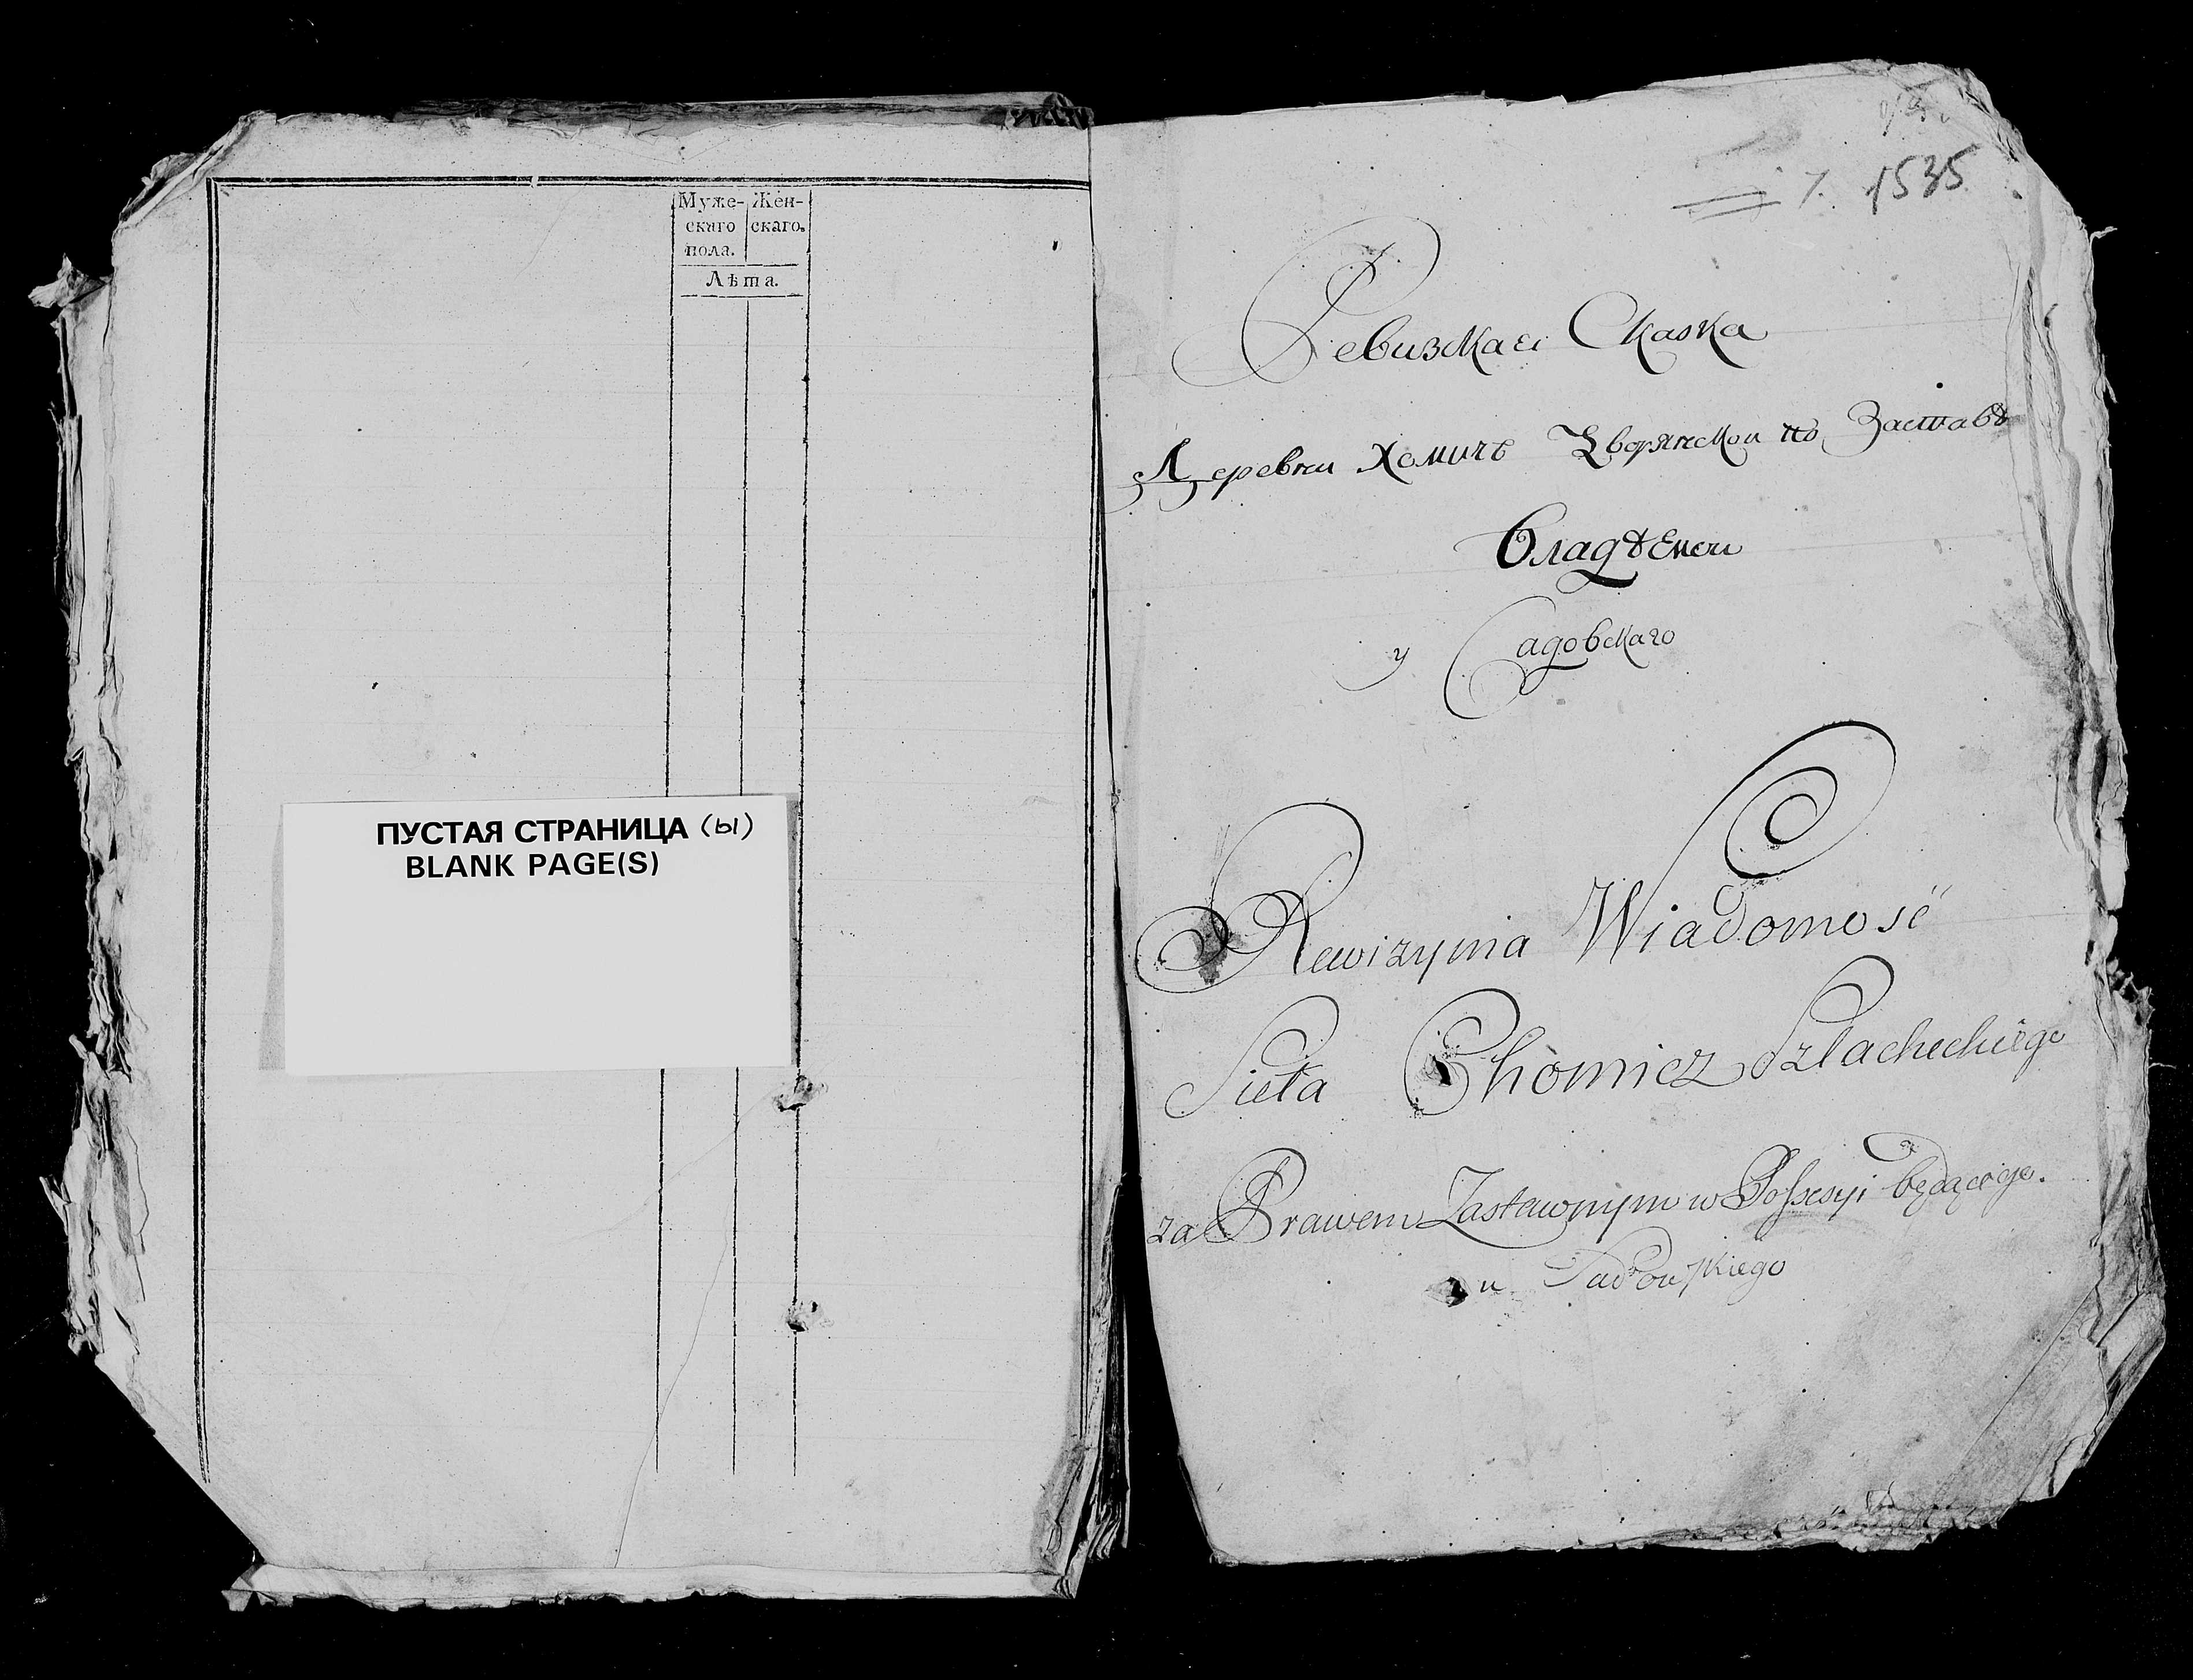 Муже- Жен-
скаго скаго.
пола.
Лѣта.
ПУСТАЯ СТРАНИЦА (Ы)
BLANK PAGE(S)
7. 1535
Ревизкая Сказка
Деревни Хомичъ Дворянской по Заставѣ
Владѣемои
у Садовскаго
Rewizyina Wiadomość
Sieła Chomicz Szlacheckiego
za Prawem Zastawnym w Possesyi będącego.
u Sadowskiego